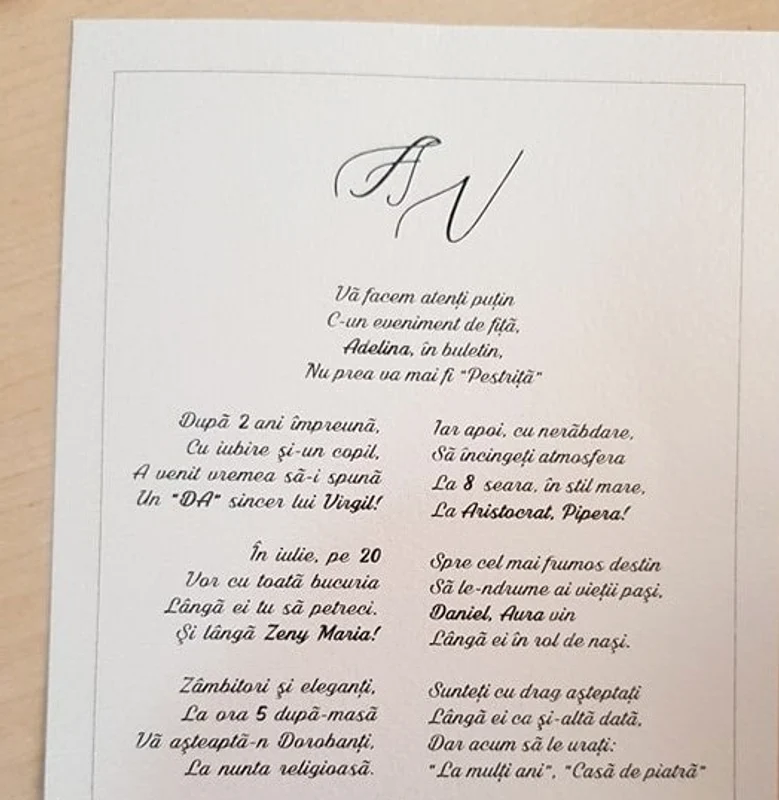 AV
Vã facem atenți puțin
C-un eveniment de fițã,
Adelina, în buletin,
Nu prea va mai fi "Pestrițã"
Dupã 2 ani împreunã,
Cu iubire şi-un copil,
A venit vremea sã-i spunã
Un "DA" sincer lui Virgil!
În iulie, pe 20
Vor cu toatã bucuria
Lângã ei tu sã petreci.
Şi lângã Zeny Maria!
Zâmbitori şi eleganți,
La ora 5 dupã-masã
Vã aşteaptã-n Dorobanți,
La nunta religioasã.
Iar apoi, cu nerãbdare,
Sã încingeți atmosfera
La 8 seara, în stil mare,
La Aristocrat, Pipera!
Spre cel mai frumos destin
Sã le-ndrume ai vieții paşi,
Daniel, Aura vin
Lângã ei în rol de naşi.
Sunteți cu drag aşteptați
Lângã ei ca şi-altã datã,
Dar acum sã le urați:
"La mulți ani", "Casã de piatrã"